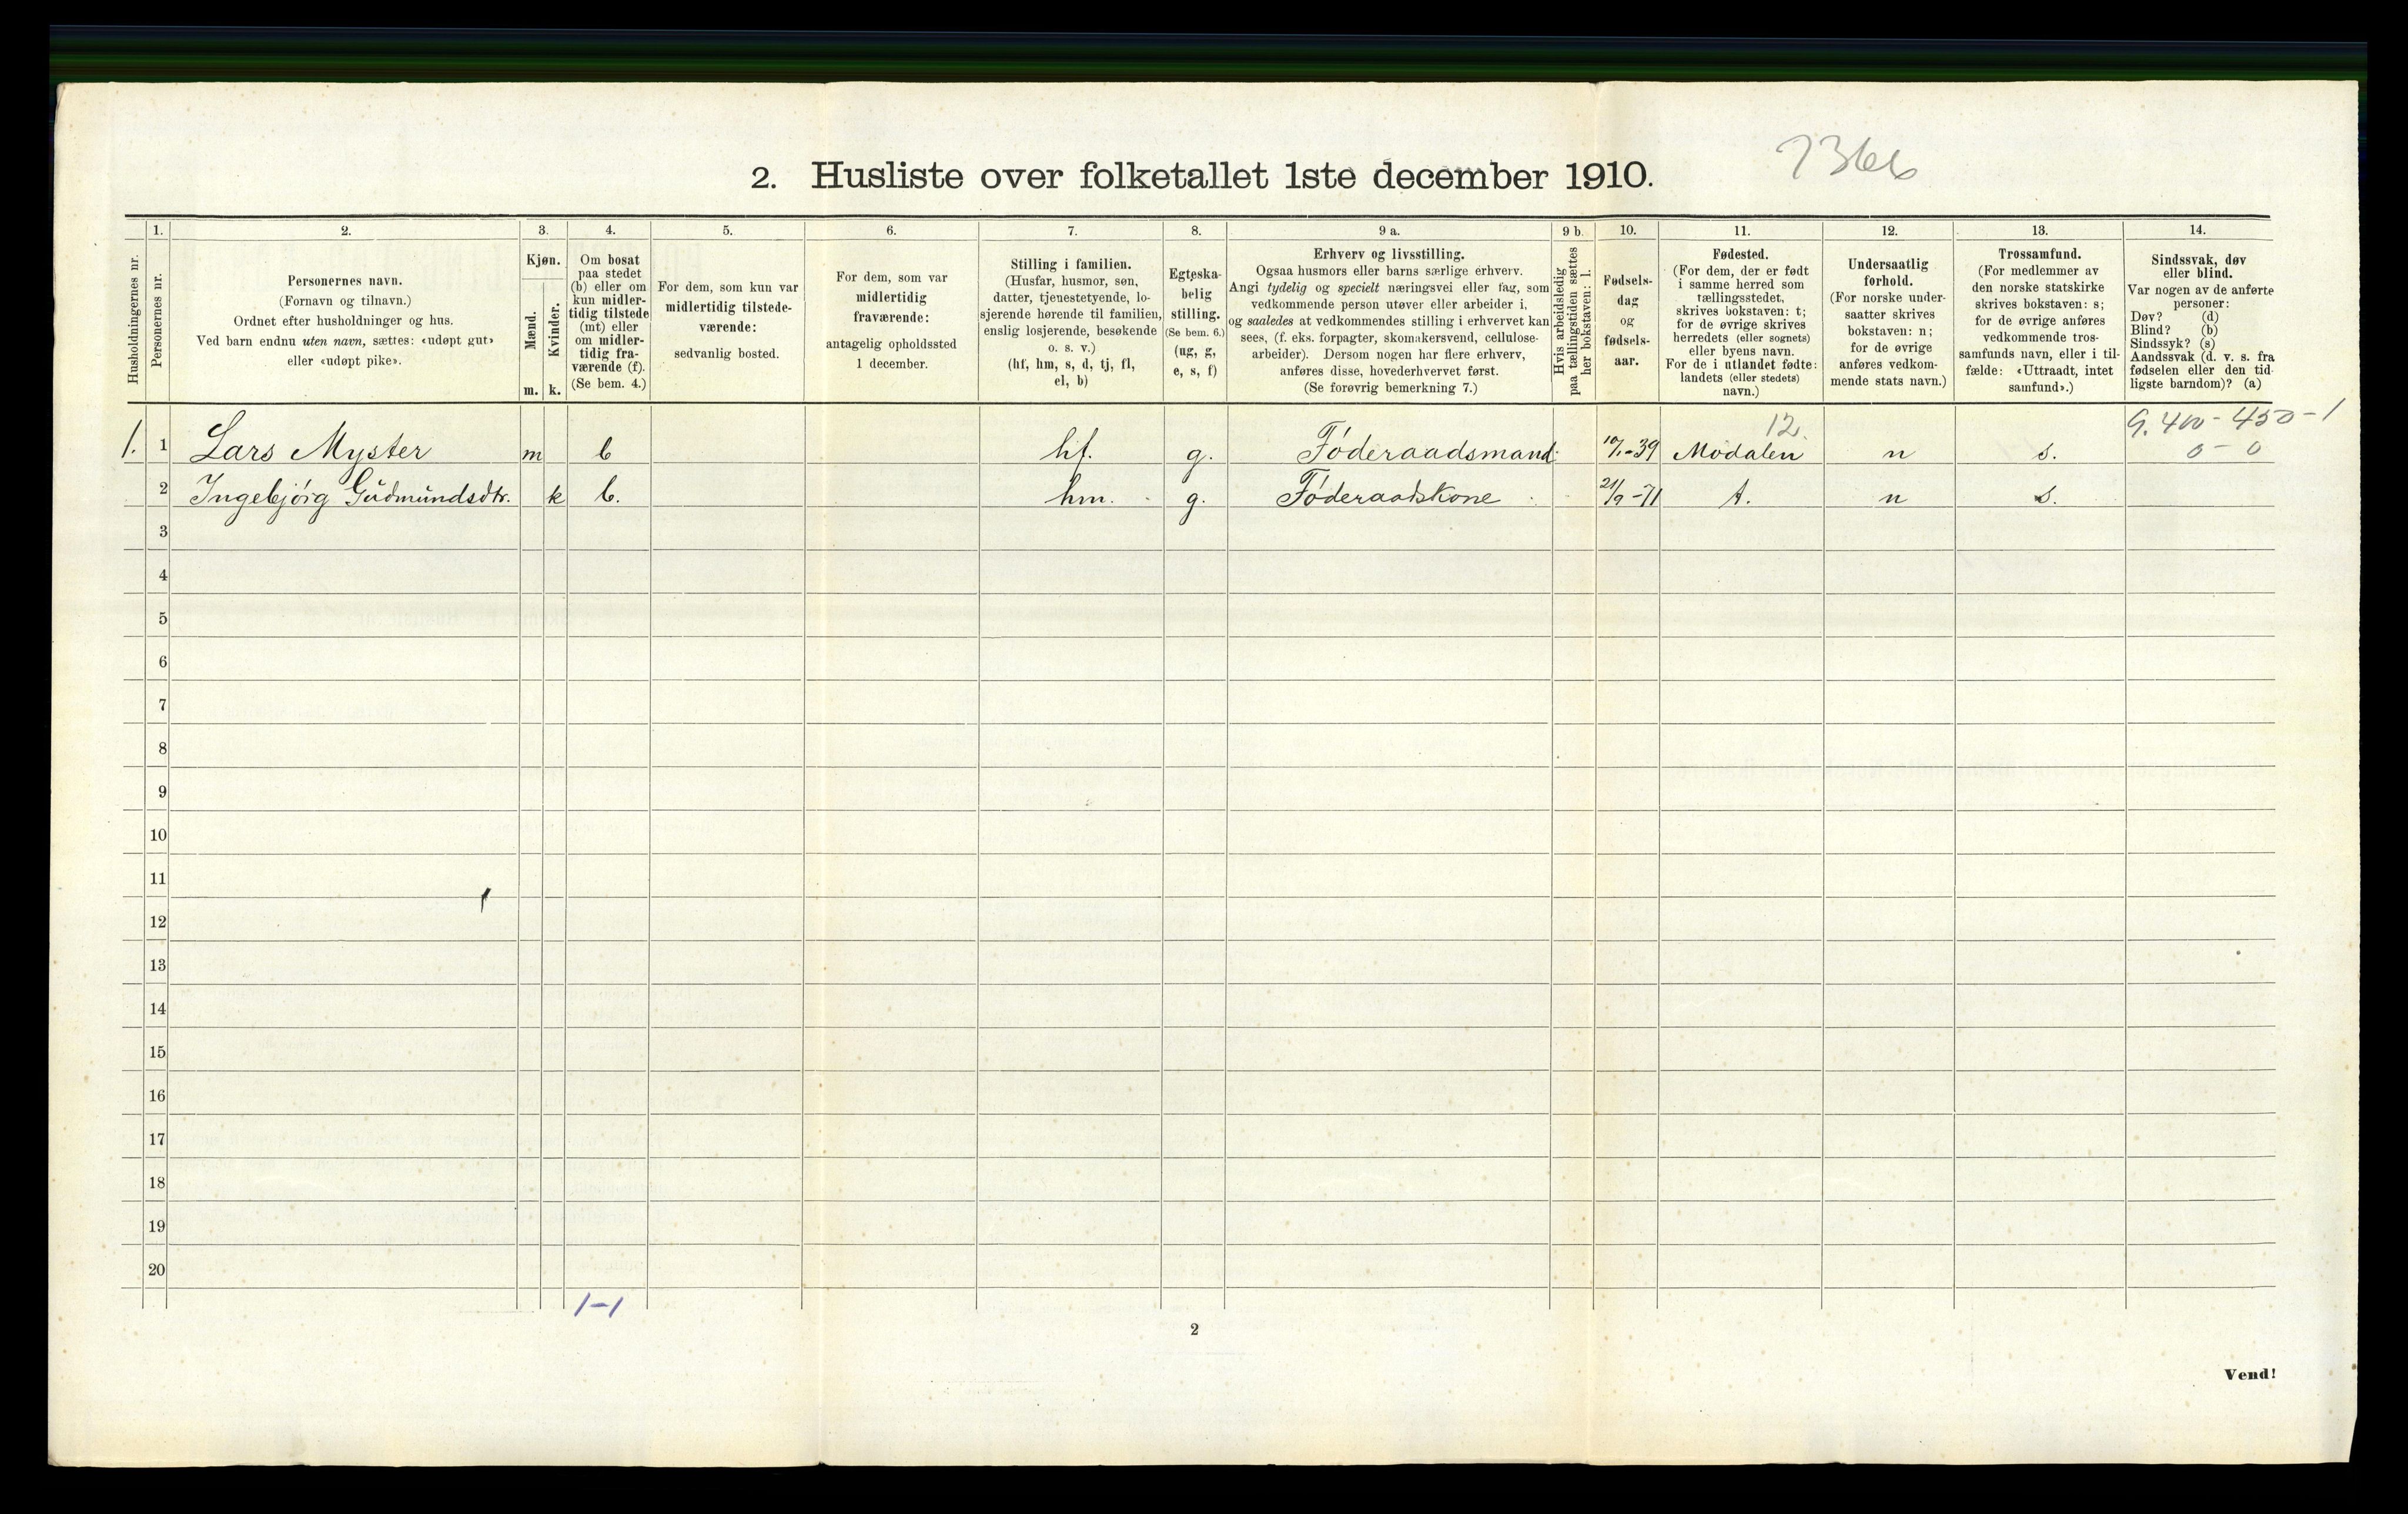 2. Husliste over folketallet 1ste december 1910.
Husholdningernes nr.
1.
Personernes nr.
2.
Personernes navn.
(Fornavn og tilnavn.)
Ordnet efter husholdninger og hus.
Ved barn endnu uten navn, sættes: «udøpt gut»
eller «udøpt pike».
3.
Kjøn.
Mænd.
m.
Kvinder.
k.
4.
Om bosat
paa stedet
(b) eller om
kun midler-
tidig tilstede
(mt) eller
om midler-
tidig fra-
værende (f).
(Se bem. 4.)
5.
For dem, som kun var
midlertidig tilstede-
værende:
sedvanlig bosted.
6.
For dem, som var
midlertidig
fraværende:
antagelig opholdssted
1 december.
7.
Stilling i familien.
(Husfar, husmor, søn,
datter, tjenestetyende, lo-
sjerende hørende til familien,
enslig losjerende, besøkende
o. s. v.)
(hf, hm, s, d, tj, fl,
el, b)
8.
Egteska-
belig
stilling.
(Se bem. 6.)
(ug, g,
e, s, f)
9 a.
Erhverv og livsstilling.
Ogsaa husmors eller barns særlige erhverv.
Angi tydelig og specielt næringsvei eller fag, som
vedkommende person utøver eller arbeider i,
og saaledes at vedkommendes stilling i erhvervet kan
sees, (f. eks. forpagter, skomakersvend, cellulose-
arbeider). Dersom nogen har flere erhverv,
anføres disse, hovederhvervet først.
(Se forøvrig bemerkning 7.)
9 b.
Hvis arbeidsledig
paa tællingstiden sættes
her bokstaven: l.
10.
Fødsels-
dag
og
fødsels-
aar.
11.
Fødested.
(For dem, der er født
i samme herred som
tællingsstedet,
skrives bokstaven: t;
for de øvrige skrives
herredets (eller sognets)
eller byens navn.
For de i utlandet fødte:
landets (eller stedets)
navn.)
12.
Undersaatlig
forhold.
(For norske under-
saatter skrives
bokstaven: n;
for de øvrige
anføres vedkom-
mende stats navn.)
13.
Trossamfund.
(For medlemmer av
den norske statskirke
skrives bokstaven: s;
for de øvrige anføres
vedkommende tros-
samfunds navn, eller i til-
fælde: «Uttraadt, intet
samfund».)
14.
Sindssvak, døv
eller blind.
Var nogen av de anførte
personer:
Døv? (d)
Blind? (b)
Sindssyk? (s)
Aandssvak (d. v. s. fra
fødselen eller den tid-
ligste barndom)? (a)
12.
G. 400 - 450 - 1
0 - 0
1. 1 Lars Myster m b hf. g. Føderaadsmand -39 Modalen n s.
2 Ingebjørg Gudmundsdtr. k b. hm. g. Føderaadskone 21/9 -71 t. n s.
3
4
5
6
7
8
9
10
11
12
13
14
15
16
17
18
19
20
1-1
2
Vend!